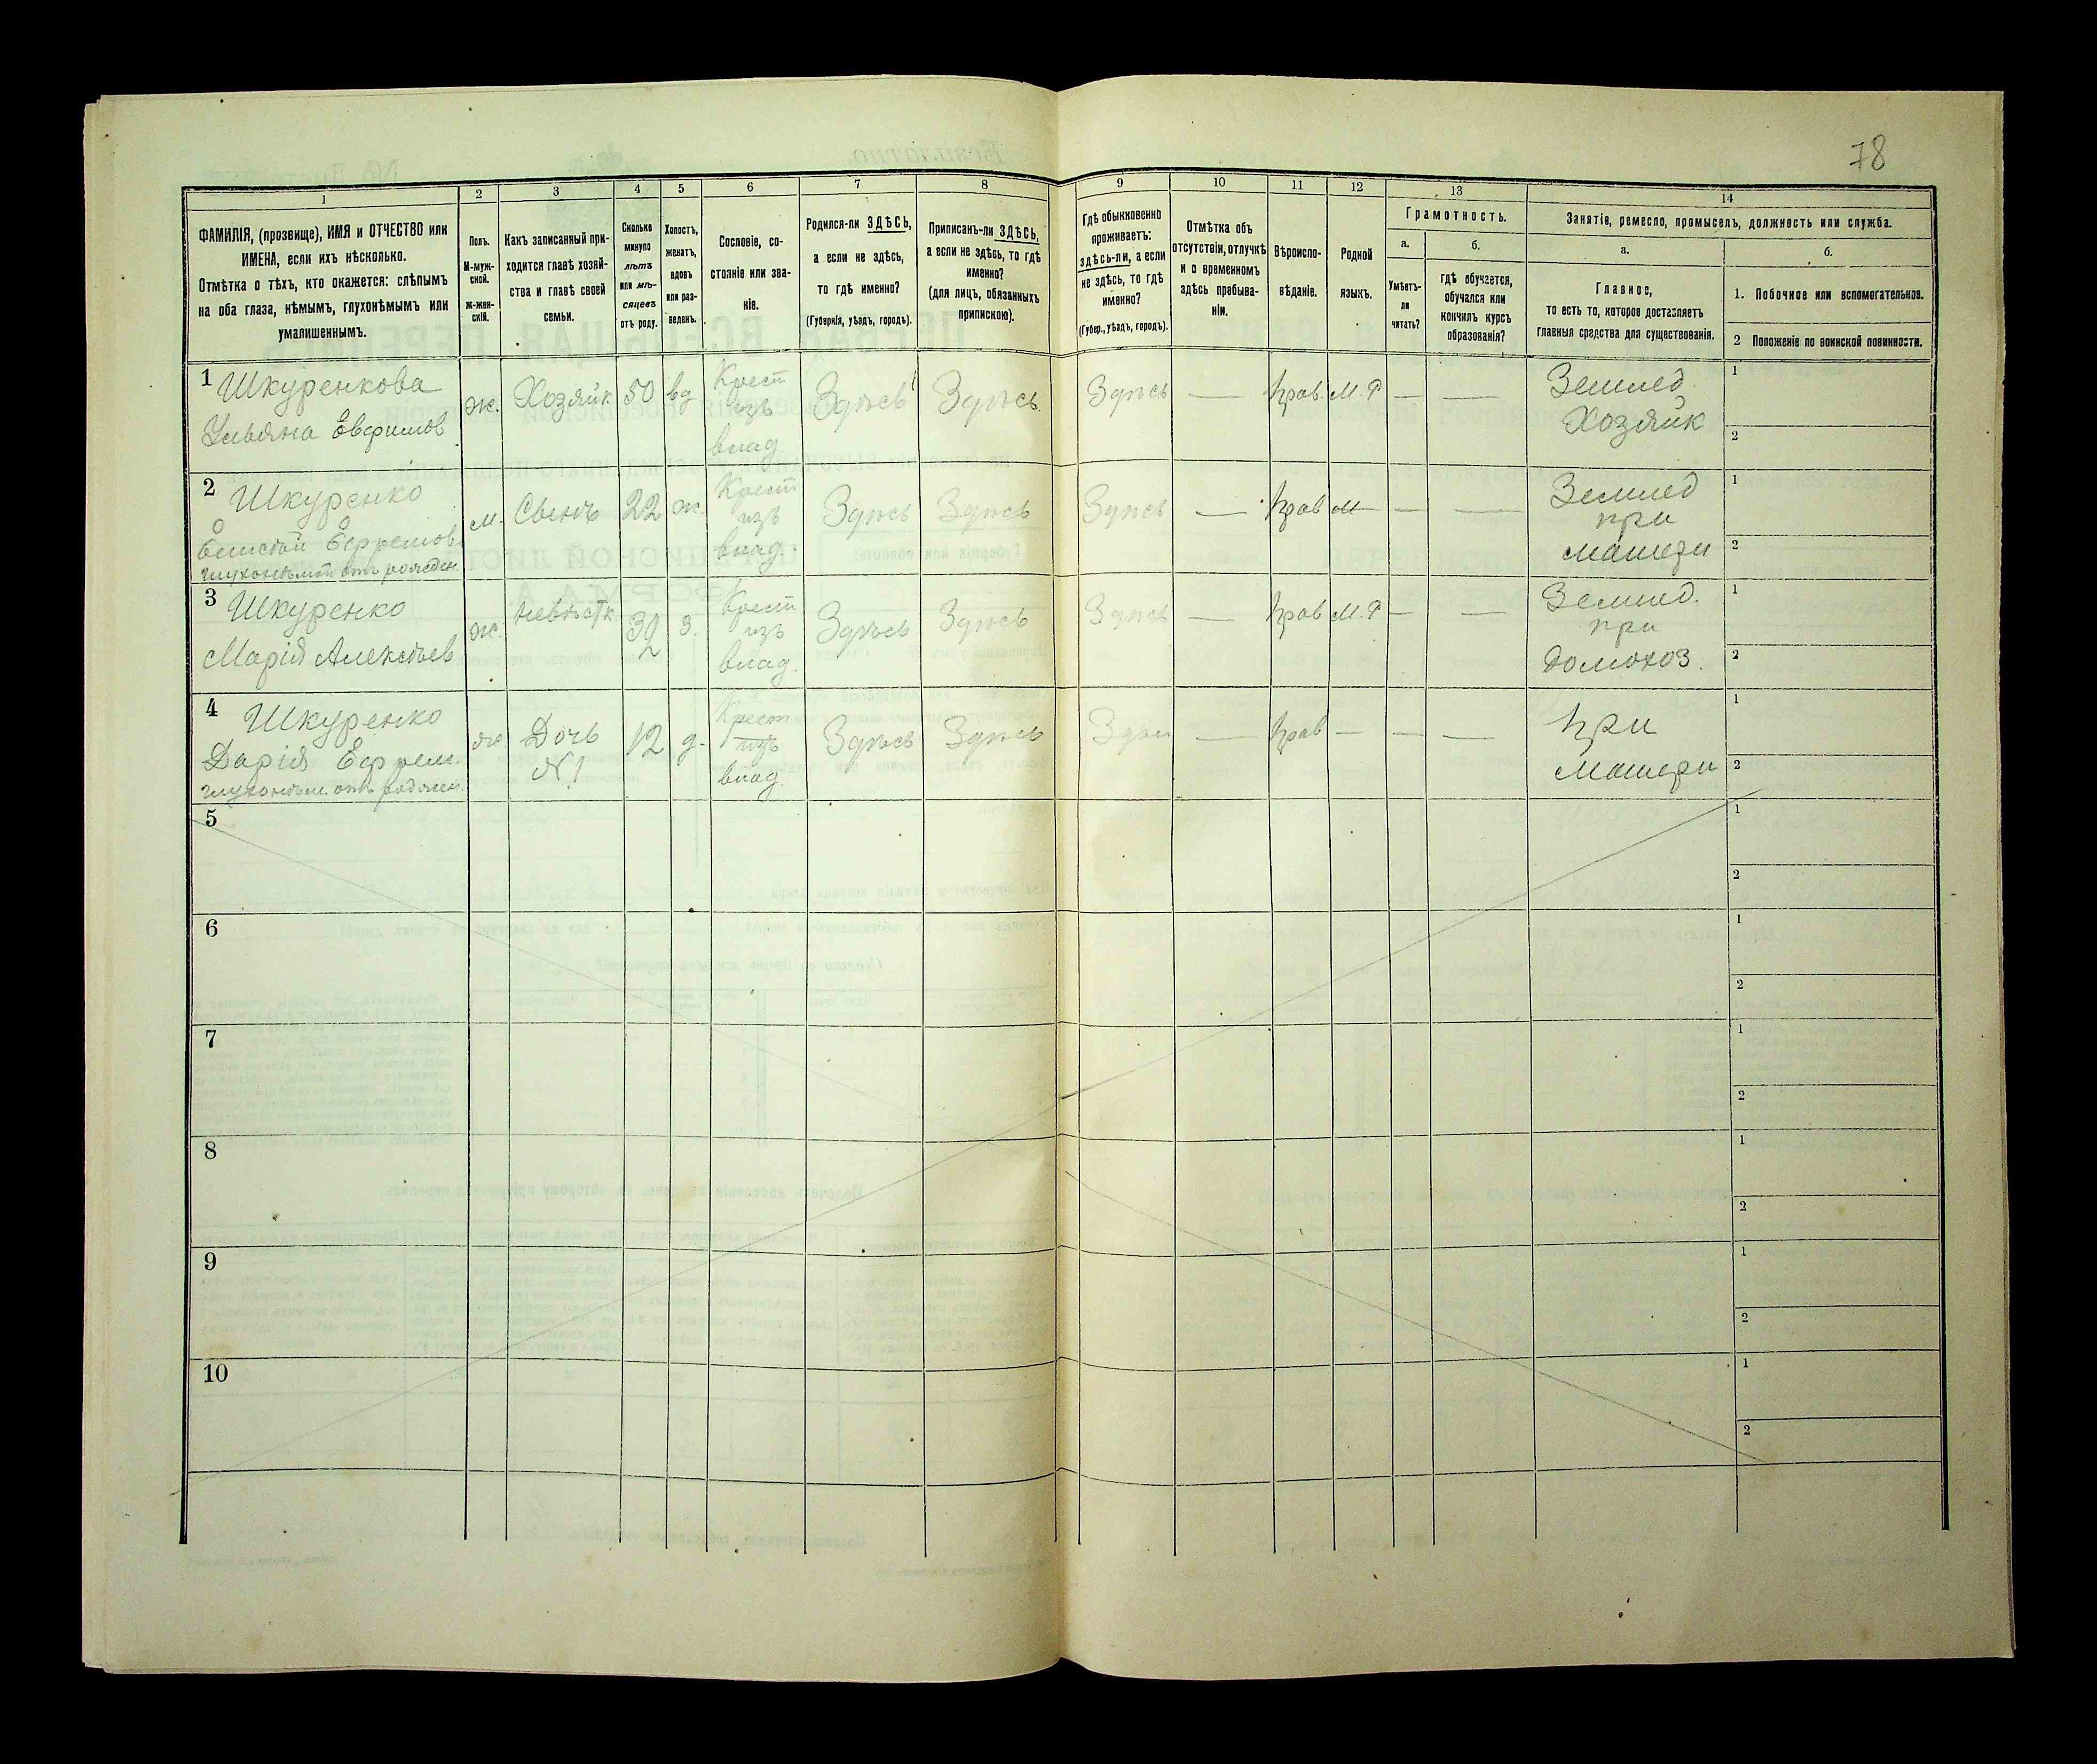 78
1
2
3
4
5
6
7
8
9
10
11
12
13
14
ФАМИЛІЯ, (прозвище), ИМЯ и ОТЧЕСТВО или
ИМЕНА, если ихъ нѣсколько.
Отмѣтка о тѣхъ, кто окажется: слѣпымъ
на оба глаза, нѣмымъ, глухонѣмымъ или
умалишеннымъ.
Полъ.
М-муж-
ской.
Ж-жен-
скій.
Какъ записанный при-
ходится главѣ хозяй-
ства и главѣ своей
семьи.
Сколько
минуло
лѣтъ
или мѣ-
сяцевъ
отъ роду.
Холостъ,
женатъ,
вдовъ
или раз-
веденъ.
Сословіе, со-
стояніе или зва-
ніе.
Родился-ли ЗДѢСЬ,
а если не здѣсь,
то гдѣ именно?
(Губернія, уѣздъ, городъ).
Приписанъ-ли ЗДѢСЬ,
а если не здѣсь, то гдѣ
именно?
(для лицъ, обязанныхъ
припискою).
Гдѣ обыкновенно
проживаетъ:
здѣсь-ли, а если
не здѣсь, то гдѣ
именно?
(Губер., уѣздъ, городъ).
Отмѣтка объ
отсутствіи, отлучкѣ
и о временномъ
здѣсь пребыва-
ніи.
Вѣроиспо-
вѣданіе.
Родной
языкъ.
Грамотность.
а.
Умѣетъ-
ли
читать?
б.
Гдѣ обучается,
обучался или
кончилъ курсъ
образованія?
Занятіе, ремесло, промыселъ, должность или служба.
а.
Главное,
то есть то, которое доставляетъ
главныя средства для существованія.
б.
1. Побочное или вспомогательное.
2 Положеніе по воинской повинности.
1 Шкуренкова
Ульяна Евфимов
ж.
Хозяйк
50
вд
Крест
изъ
влад.
Здѣсь
Здѣсь
Здѣсь
—
Прав.
М.Р
—
—
Землед.
Хозяйк
1
2
2 Шкуренко
Ефремов
глухонѣмой отъ рожден.
м.
Сынъ
22
ж.
Крест
изъ
влад.
Здѣсь
Здѣсь
Здѣсь
—
Прав
М
—
—
Землед
при
матери
1
2
3 Шкуренко
Марія Алексѣев
ж.
Невѣстк.
32
з.
Крест
изъ
влад.
Здѣсь
Здѣсь
Здѣсь
—
Прав
М.Р
—
—
Землед.
при
домохоз.
1
2
4 Шкуренко
Дарія Ефрем.
глухонѣм. отъ рожден.
ж.
Дочь
№1
12
д.
Крест
изъ
влад.
Здѣсь
Здѣсь
Здѣс
—
Прав
—
—
—
При
Матери
1
2
5
1
2
6
1
2
7
1
2
8
1
2
9
1
2
10
1
2